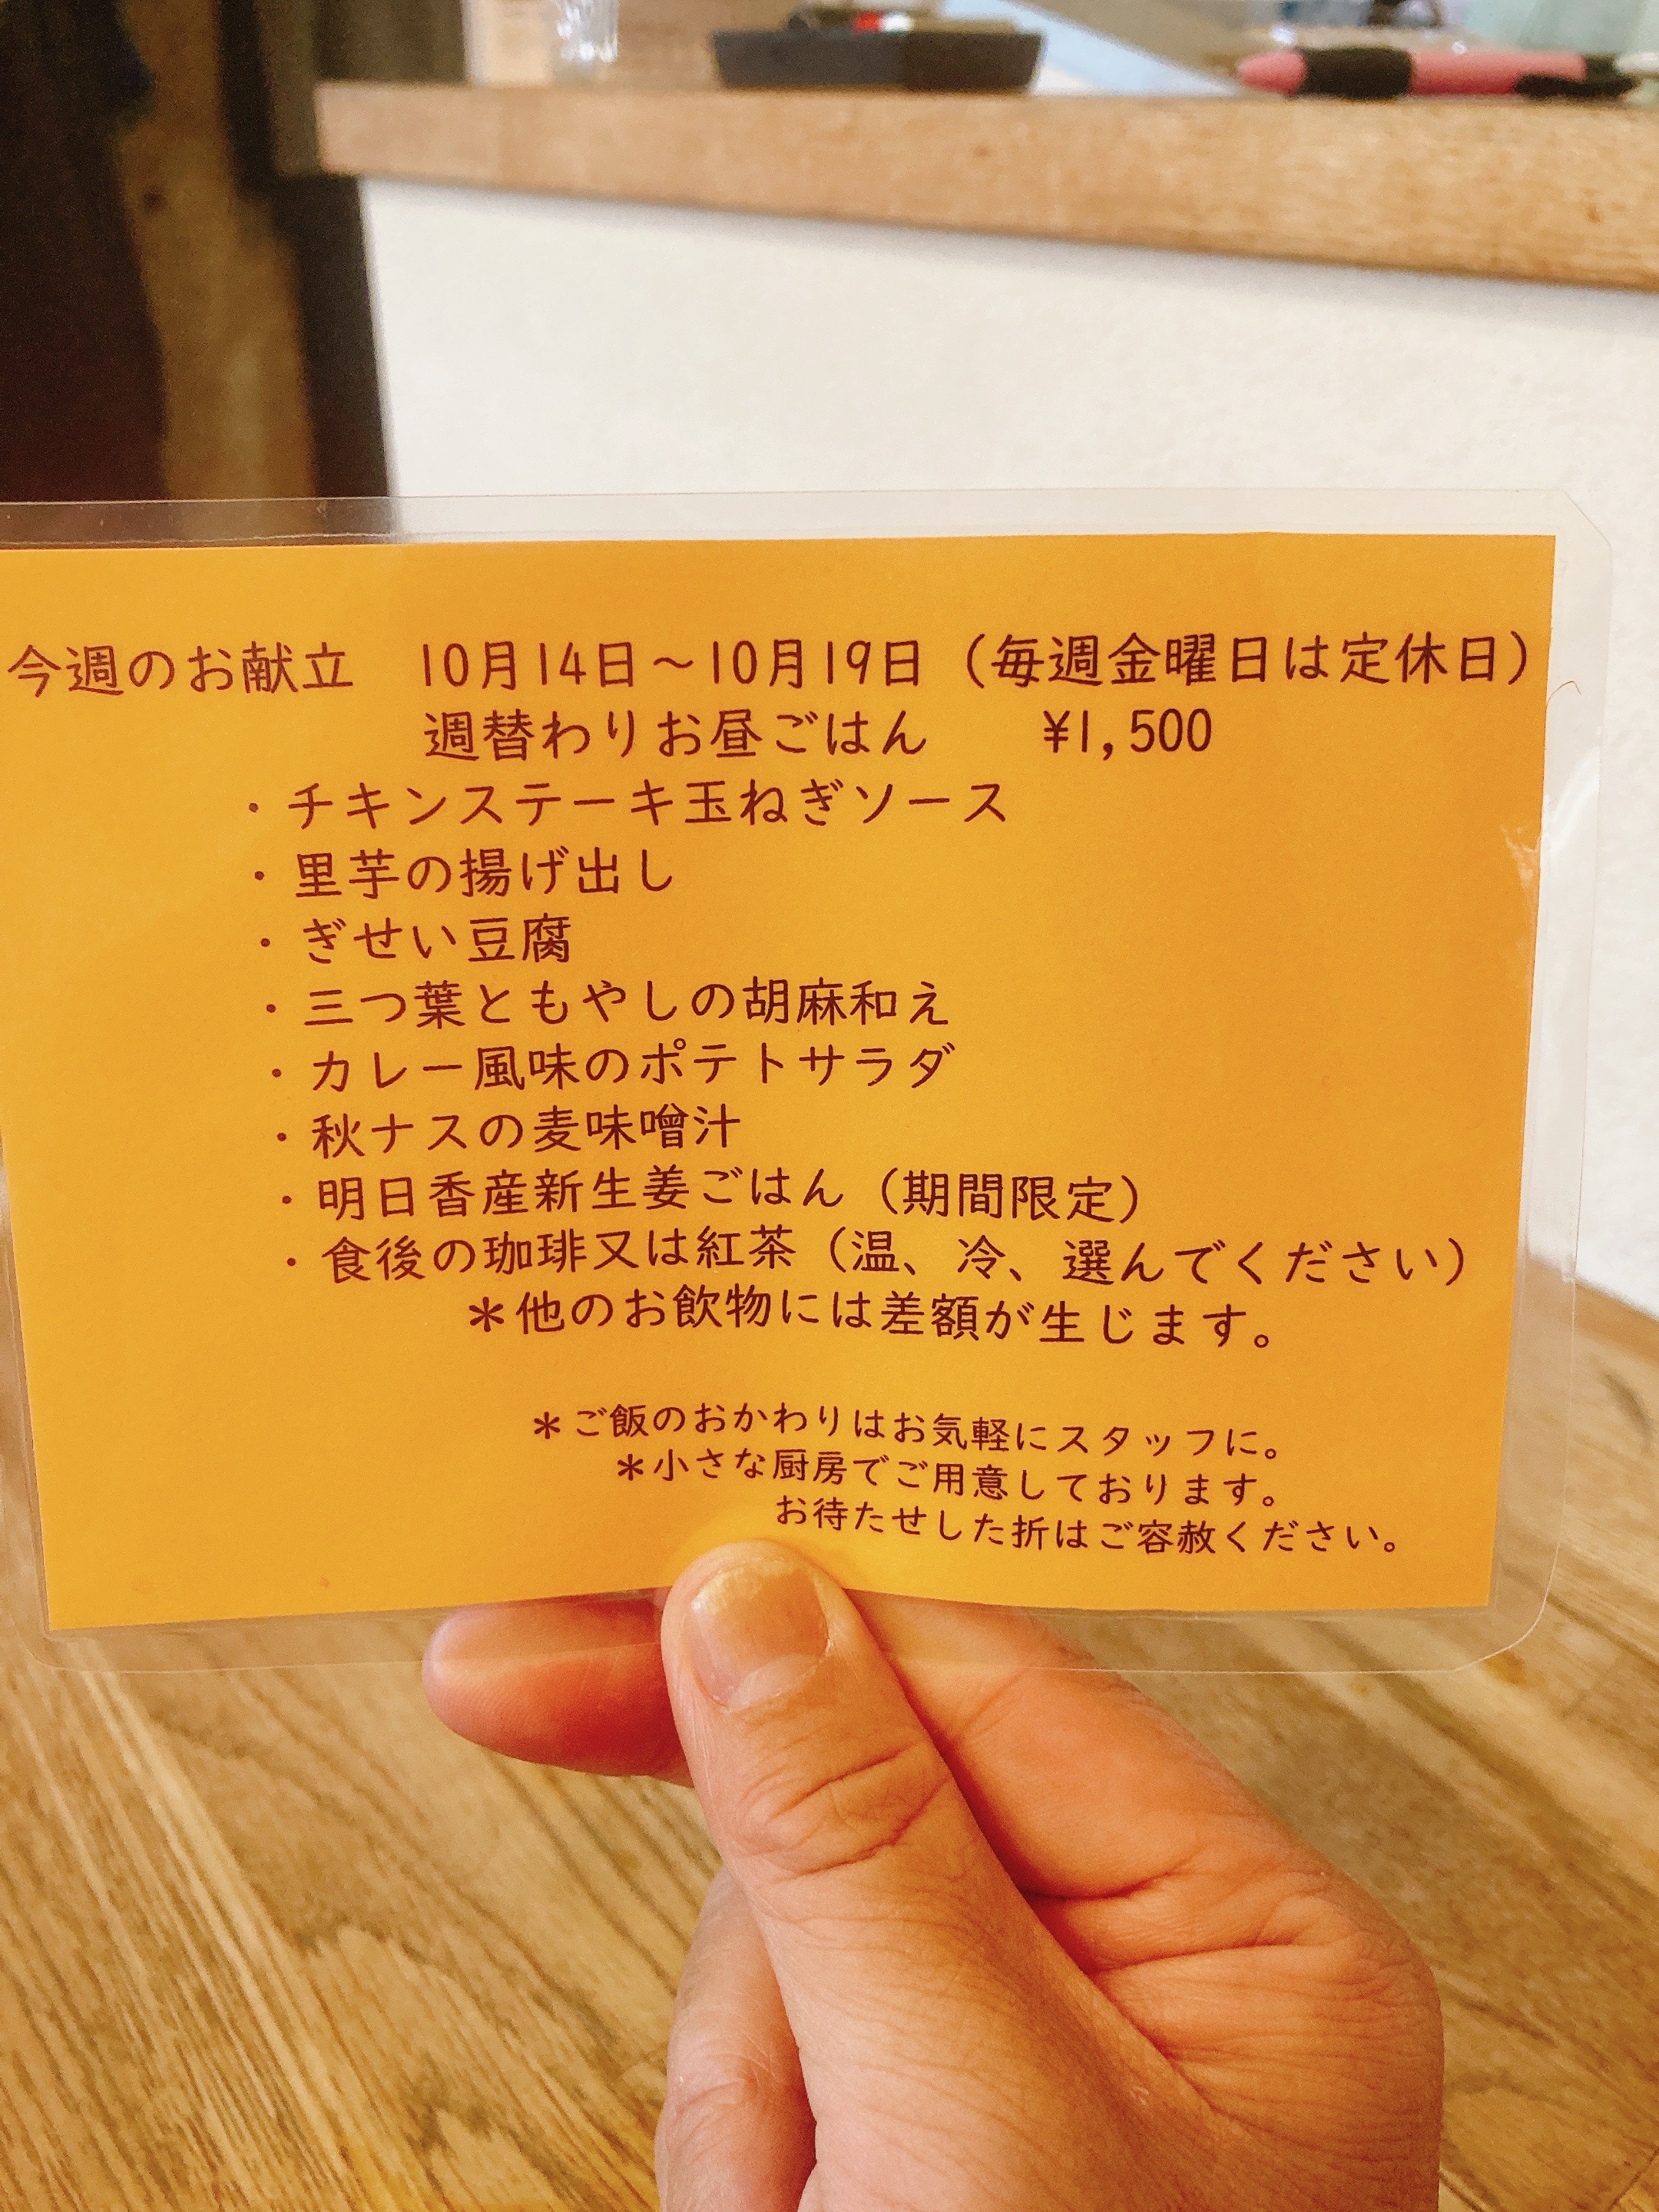 今週のお献立　10月14日～10月19日（毎週金曜日は定休日）
週替わりお昼ごはん　　¥1,500
・チキンステーキ玉ねぎソース
・里芋の揚げ出し
・ぎせい豆腐
・三つ葉ともやしの胡麻和え
・カレー風味のポテトサラダ
・秋ナスの麦味噌汁
・明日香産新生姜ごはん（期間限定）
・食後の珈琲又は紅茶（温、冷、選んでください）
＊他のお飲物には差額が生じます。
＊ご飯のおかわりはお気軽にスタッフに。
＊小さな厨房でご用意しております。
お待たせした折はご容赦ください。